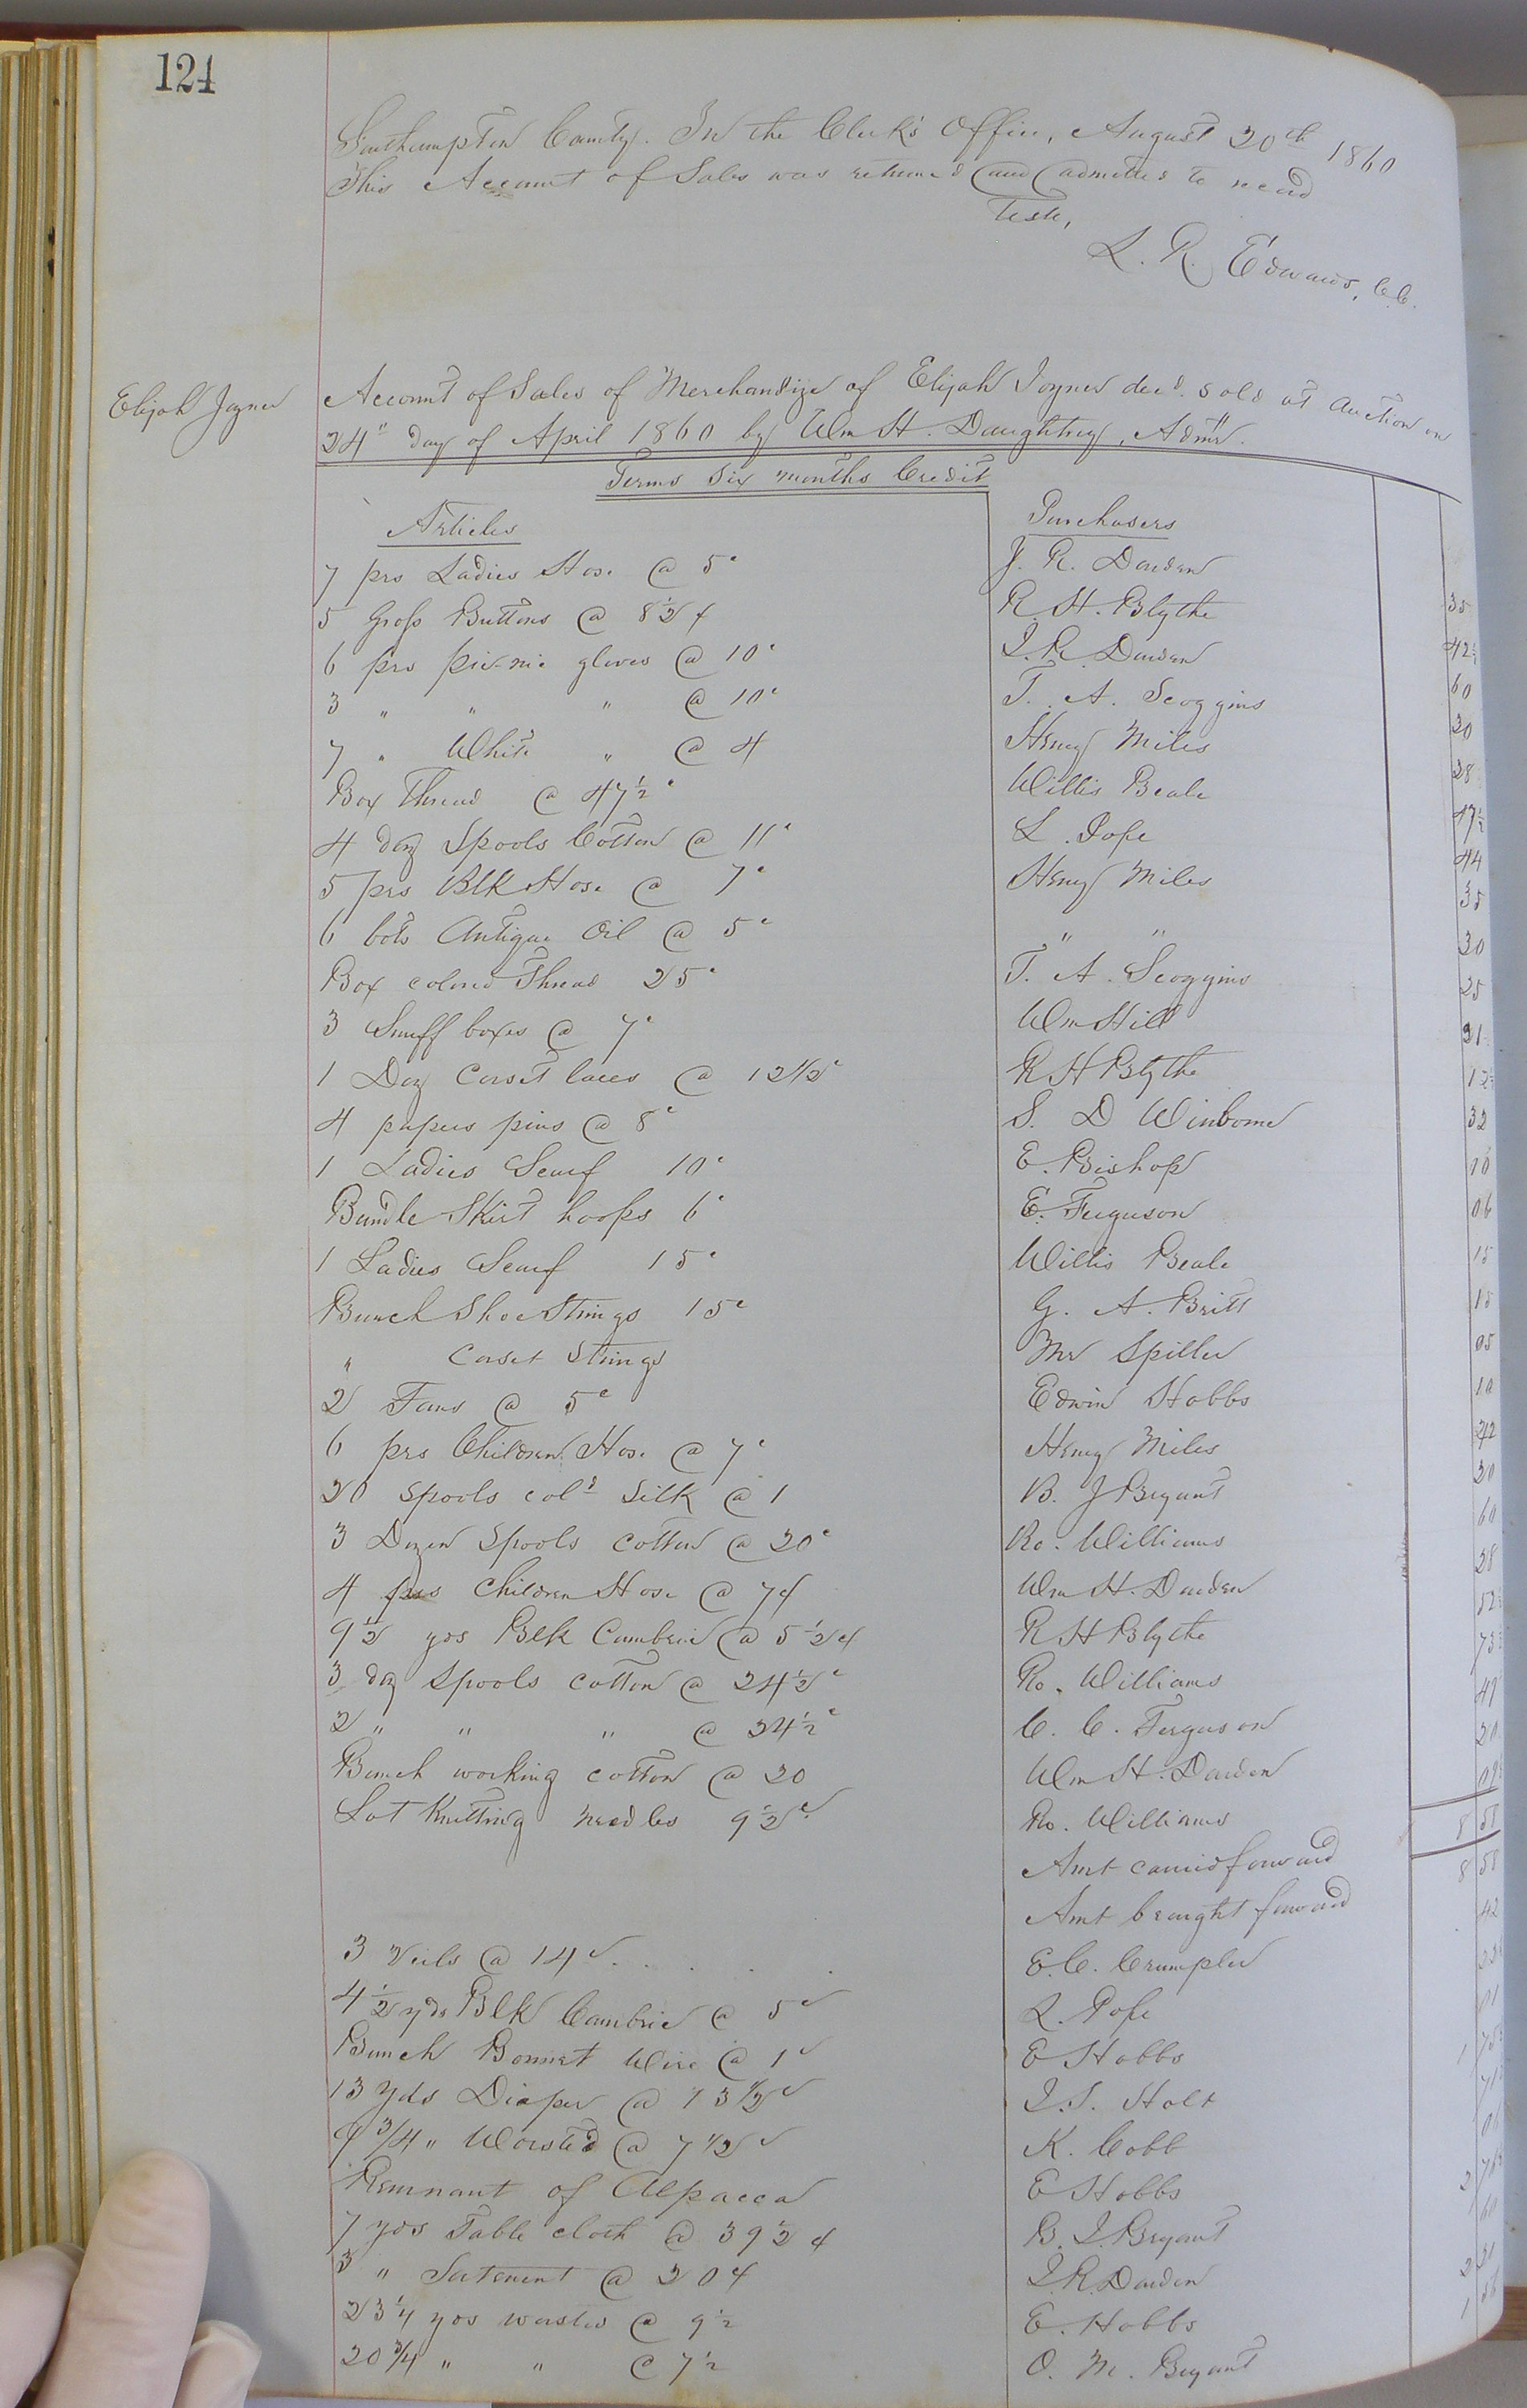 124
Southampton County. In the Clerk's Office, August 20th 1860
This Account of Sales was returned and admitted to record
Teste,
L. R. Edwards, C.C.
Elijah Joyner
Account of Sales of Merchandize of Elijah Joyner decd. sold at auction on
24" day of April 1860 by Wm H. Daughtrey, Admr.
Terms Six months Credit
Articles Purchasers
7 prs Ladies Hose @ 5c J. R. Darden 35
5 Gross Buttons @ 8½ ¢ R. H. Blythe 42½
6 prs pic-nic gloves @ 10c J. R. Darden 60
3 " " " @ 10c T. A. Scoggins 30
7 " White " @ 4 Henry Miles 28
Box Thread @ 47½c Willis Beale 47½
4 doz Spools Cotton @ 11c L. Pope 44
5 prs Blk Hose @ 7c Henry Miles 35
6 bots Antique Oil @ 5c " " 30
Box colored Thread 25c T. A. Scoggins 25
3 Snuff boxes @ 7c Wm Hill 21
1 Doz Corset laces @ 12½c R H Blythe 12½
4 papers pins @ 8c S. D Winborne 32
1 Ladies Scarf 10c E. Bishop 10
Bundle Skirt hoops 6c E. Ferguson 06
1 Ladies Scarf 15c Willis Beale 15
Bunch Shoe Strings 15c G. A. Britt 15
" Corset Strings Mr Spiller 05
2 Fans @ 5c Edwin Hobbs 10
6 prs Children Hose @ 7c Henry Miles 42
20 Spools cold Silk @ 1 B. J Bryant 20
3 Dozen Spools cotton @ 20c Ro. Williams 60
4 prs Children Hose @ 7¢ Wm H. Darden 28
9½ yds Blk Cambric @ 5½¢ R H Blythe 52
3 doz Spools cotton @ 24½c Ro. Williams 73½
2 " " " @ 24½c C. C. Ferguson 49
Bunch working cotton @ 20 Wm H. Darden 20
Lot Knitting needles 9½c Ro. Williams 09½
Amt carried forward 8 58
Amt brought forward 8 58
3 Veils @ 14c E. C. Crumpler 42
4½ yds Blk Cambric @ 5c L. Pope
Bunch Bonnet Wire @ 1c E Hobbs 01
13 yds Diaper @ 13½c J. S. Holt 1 75½
9¾ " Worsted @ 7½c K. Cobb
Remnant of Alpacca E Hobbs
7 yds Table cloth @ 39½ ¢ B. J. Bryant 2
3 " @ 20¢ J. R. Darden 60
23¼ yds worsted @ 9½ E. Hobbs 2
20¾ " " @ 7½ O. M. Bryant 1